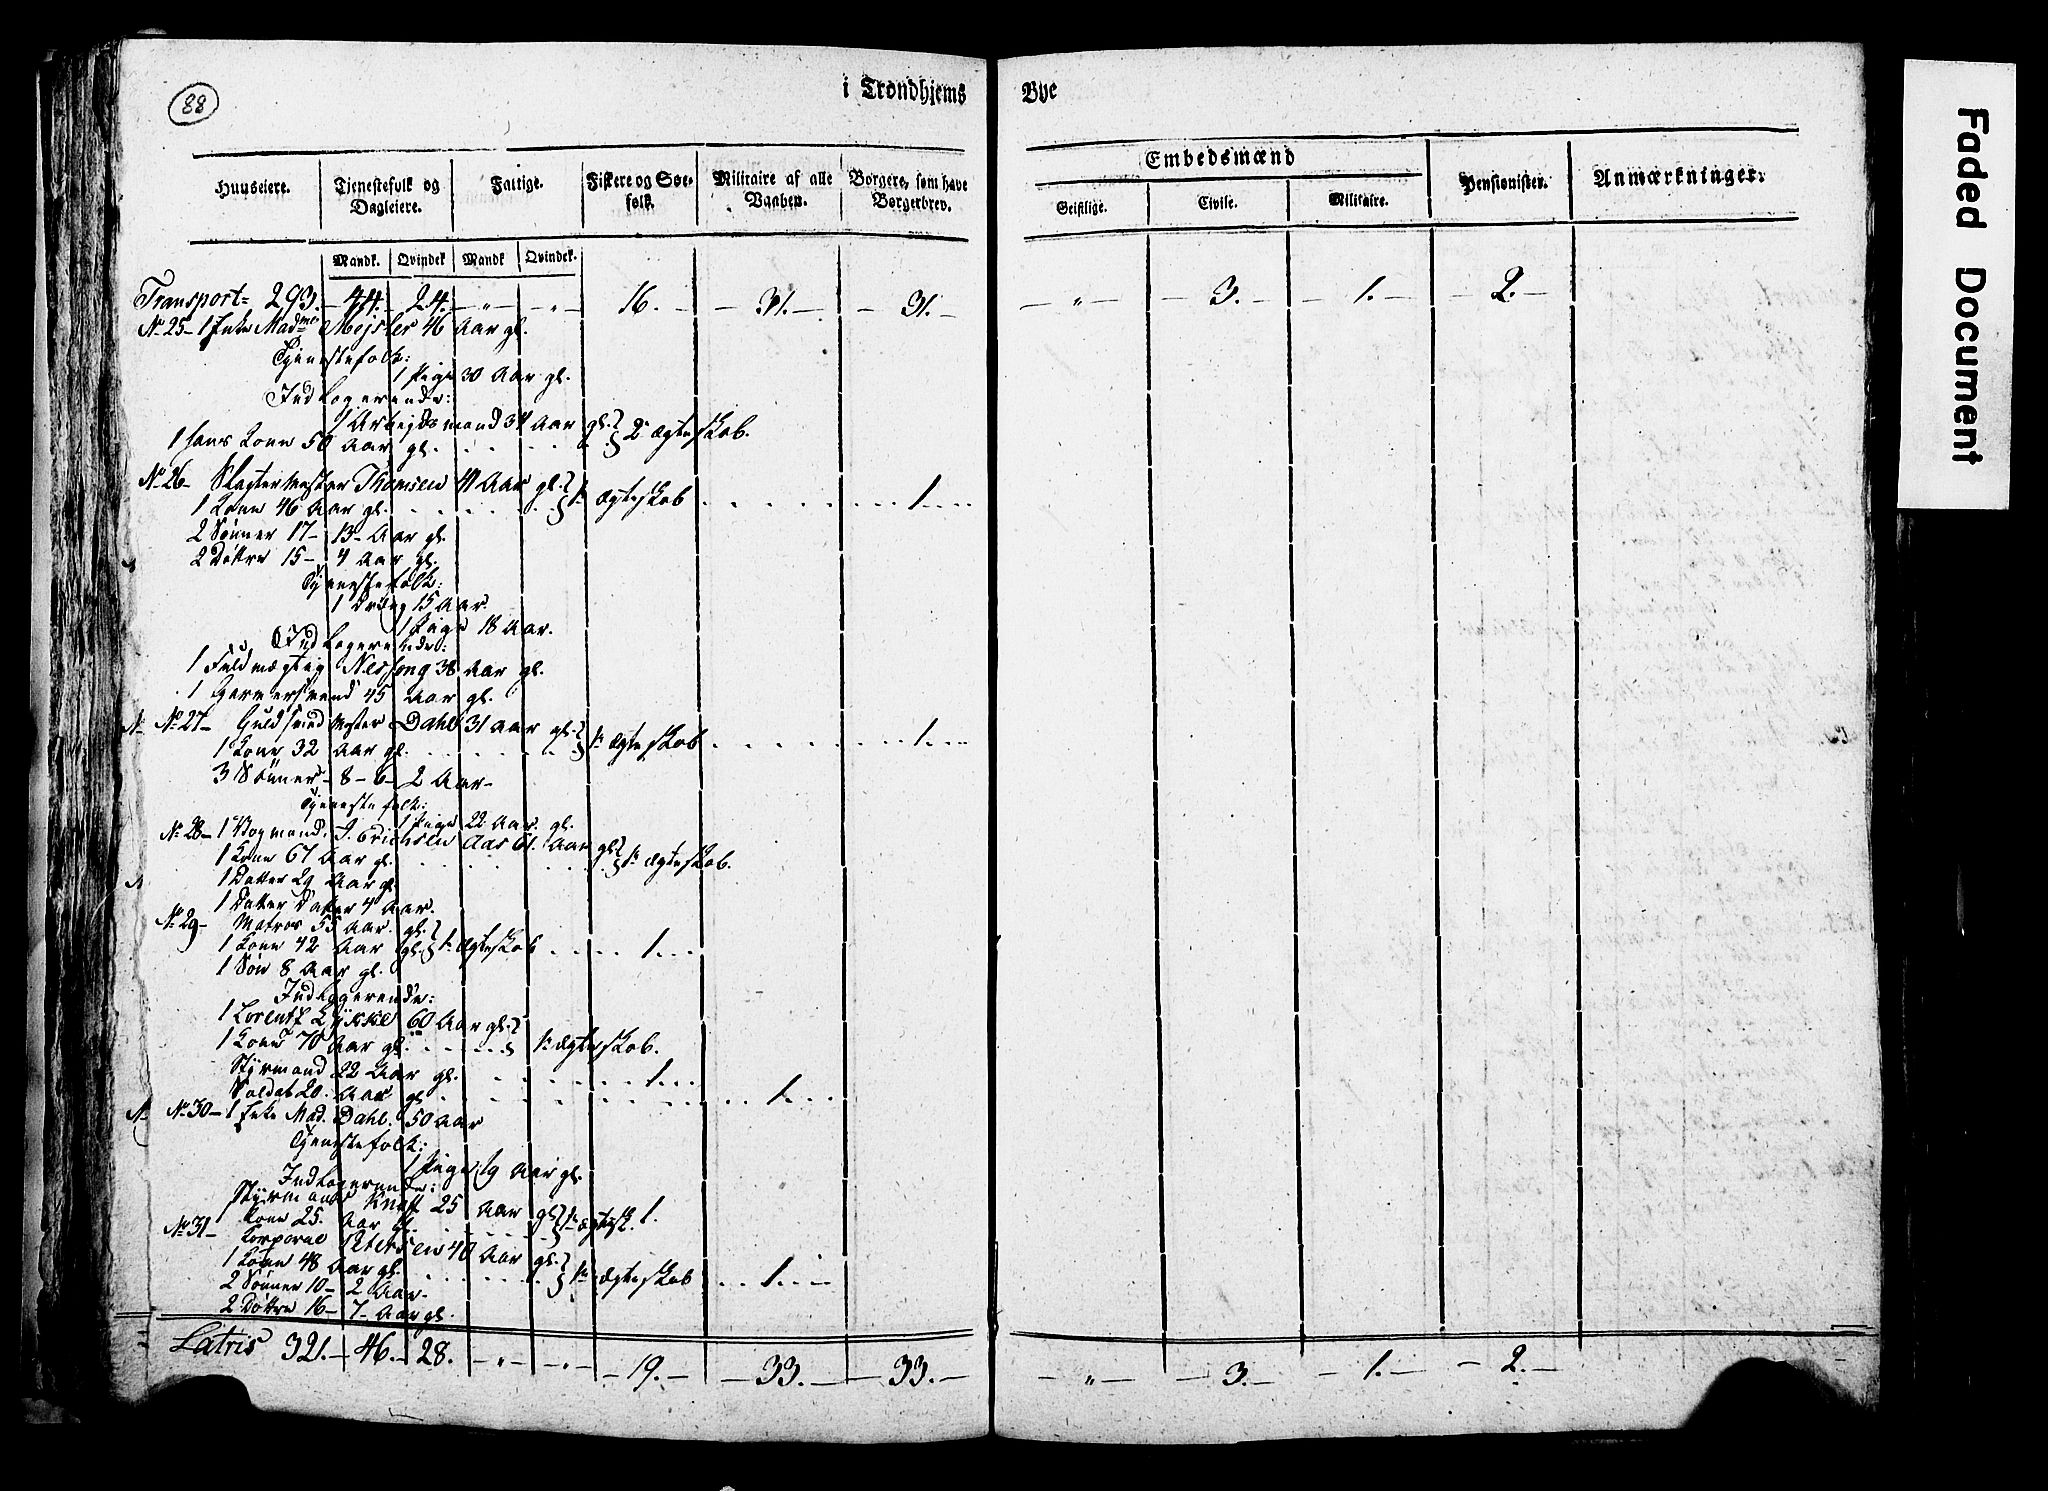 88
i Trondhjems Bye
Embedsmænd
Huuseiere. Tjenestefolk og Dagleiere. Fattige. Fiskere og Søefolk. Militaire af alle Vaaben. Borgere, som have Borgerbrev. Geistlige. Civile. Militaire. Pensionister. Anmærkninger.
Mandk. Qvindek Mandk Qvindek.
Transport= 293. – 44. – 24. – „ – – „ – 16. – – 31. – – 31. – – „ – – 3. – – 1. – – 2. –
No 25 – 1 Enke Madme Mejsler 46 Aar gl.
Tjenestefolk:
1 Pige 30 Aar gl.
Indlogerende:
1 Arbejdsmand 34 Aar gl. } 2. ægteskab.
1 hans Kone 50 Aar gl.
No 26 – Slagter Mester Thomsen 41 Aar gl. } 1te ægteskab 1.
1 Kone 46 Aar gl.
2 Sønner 17 – 13 – Aar gl.
2 Døttre 15 – 4 Aar gl.
Tjenestefolk:
1 Dreng 15 Aar.
1 Pige 18 Aar.
Indlogerende:
1 Fuldmægtig 38 Aar gl.
1 Garversvend 45 Aar gl.
No 27 – Guldsmed Mester Dahl 31 Aar gl. } 1te ægteskab 1.
1 Kone 32 Aar gl.
3 Sønner – 8 – 6 – 2 Aar –
Tjenestefolk:
1 Pige 22 Aar gl.
No 28 – 1 Vogmand. J. Erichsen Aas 61. Aar gl. } 1te ægteskab.
1 Kone 67 Aar gl.
1 Datter 29 Aar gl.
1 Datter Datter 4 Aar.
No 29 – Matros 55 Aar gl. } 1te ægteskab 1.
1 Kone 42 Aar gl.
1 Søn 8 Aar gl.
Indloggerende:
1 Lorentz Lykke 60 Aar gl. } 1te ægteskab.
1 Kone 70 Aar gl.
Styrmand 22 Aar gl. 1.
Soldat 20. Aar gl. 1.
No 30 – 1 Enke Mad. Dahl. 50 Aar
Tjenestefolk:
1 Pige 19 Aar gl.
Indlogerende:
Styrmand Knoff 25 Aar gl. } 1te ægtesk. 1.
Kone 25. Aar gl.
No 31 – Korporal Petersen 40 Aar gl. } 1te ægteskab 1.
1 Kone 48 Aar gl.
2 Sønner 10 – 2 Aar –
2 Døttre 16 – 7 – Aar gl.
Latris 321. – 46. – 28. – „ – – „ – – 19. – – 33. – – 33. – – „ – – 3. – – 1. – – 2. –
Faded Document